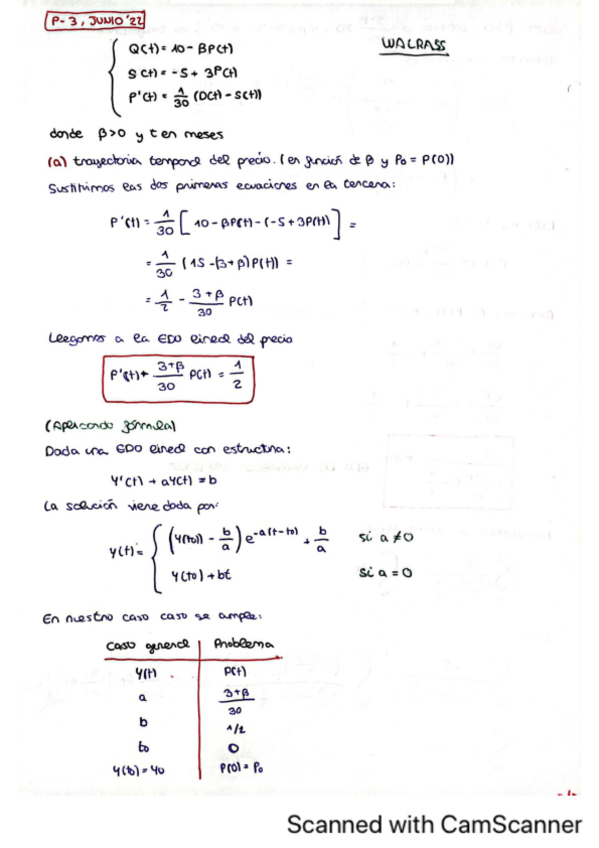 P-3, JUNIO '22
WALRASS
Q(t) = 10 - βP(t)
S(t) = -5 + 3P(t)
P'(t) = 1/30 (D(t) - S(t))
donde β>0 y t en meses
(a) trayectoria temporal del precio. (en función de β y P0 = P(0))
Sustituimos las dos primeras ecuaciones en la tercera:
P'(t) = 1/30 [10 - βP(t) - (-5 + 3P(t))] =
= 1/30 (15 - (3+β)P(t)) =
= 1/2 - 3+β/30 P(t)
Llegamos a la EDO lineal del precio
P'(t) + 3+β/30 P(t) = 1/2
(Aplicando fórmula)
Dada una EDO lineal con estructura:
Y'(t) + aY(t) = b
La solución viene dada por:
y(t) = { (y(t0) - b/a) e^-a(t-t0) + b/a si a ≠ 0
y(t0) + bt si a = 0
En nuestro caso caso se cumple:
Caso general | Problema
Y(t) P(t)
a 3+β/30
b 1/2
t0 0
y(t0) = y0 P(0) = P0
-1-
Scanned with CamScanner